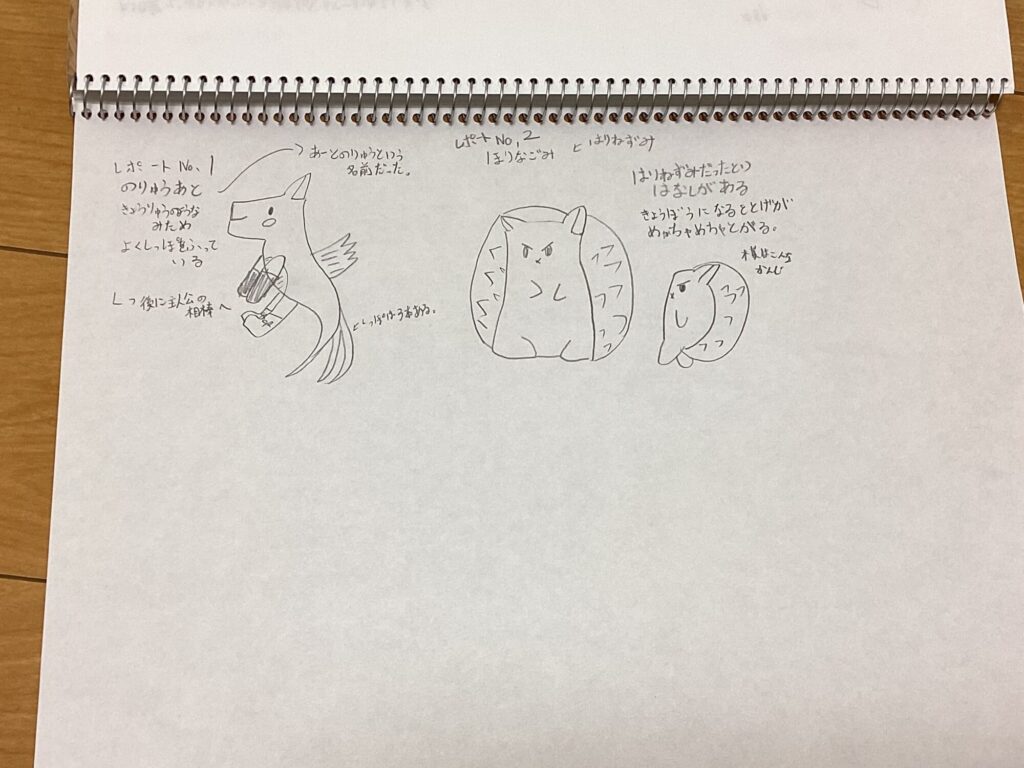 レポート No, 1
のりゅうあと
きょうりゅうのような
みため
よくしっぽをふって
いる
あーとのりゅうという
名前だった。
後に主人公の
相棒へ
しっぽは3本ある。
レポート No, 2
ほりなごみ
はりねずみ
はりねずみだったという
はなしがある
きょうぼうになるととげが
めちゃめちゃとがる。
かんじ